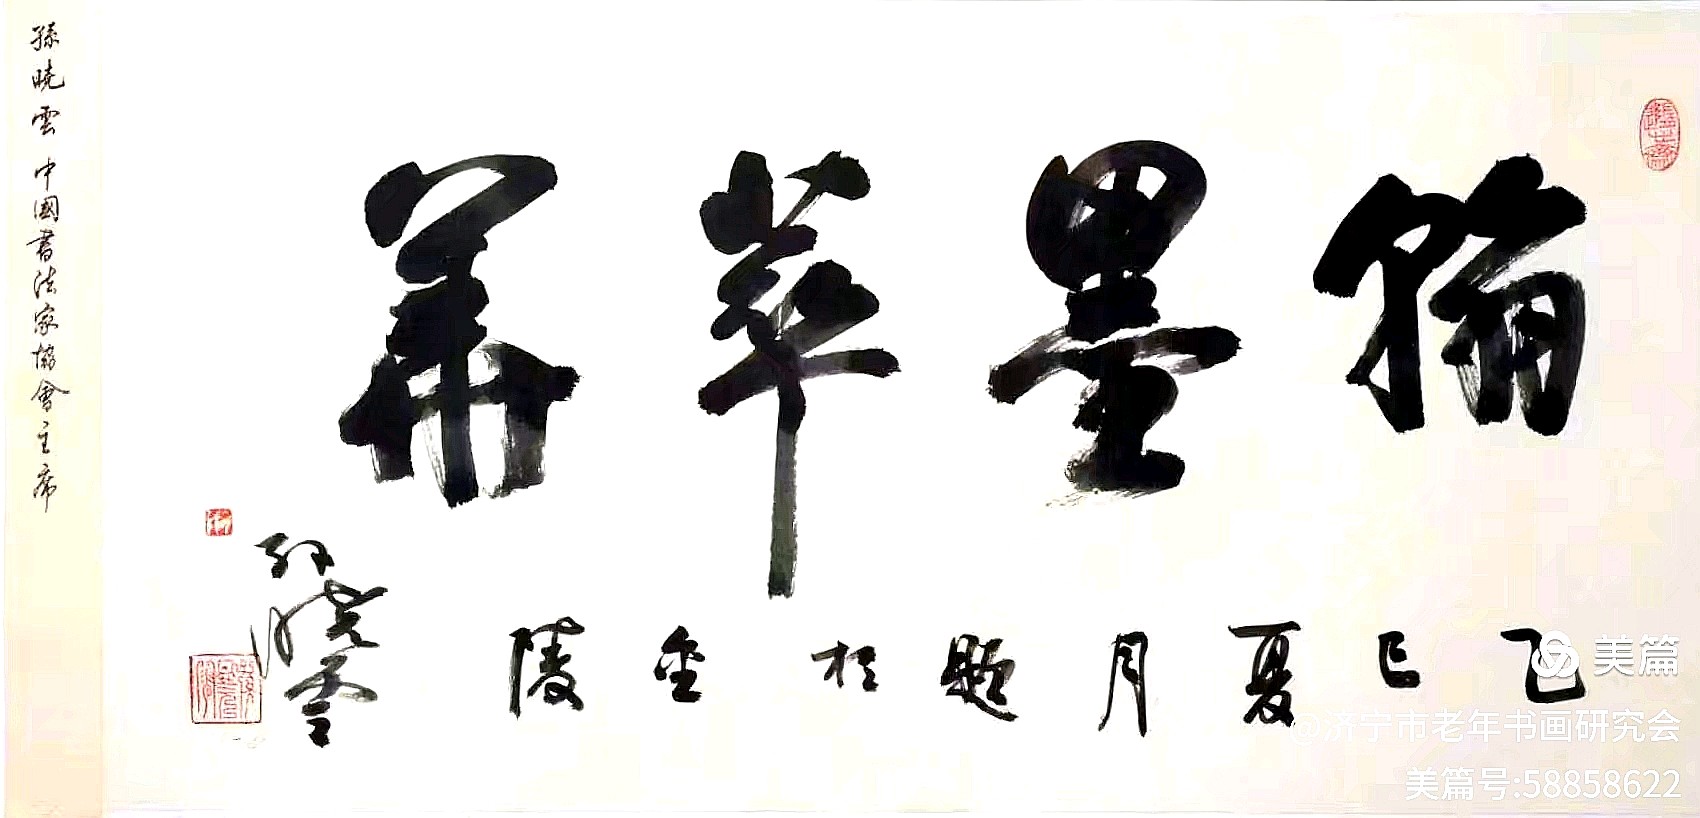 翰墨萃華
乙巳夏月題於金陵
孙晓雲
孫曉雲 中國書法家協會主席
美篇
@济宁市老年书画研究会
美篇号:58858622